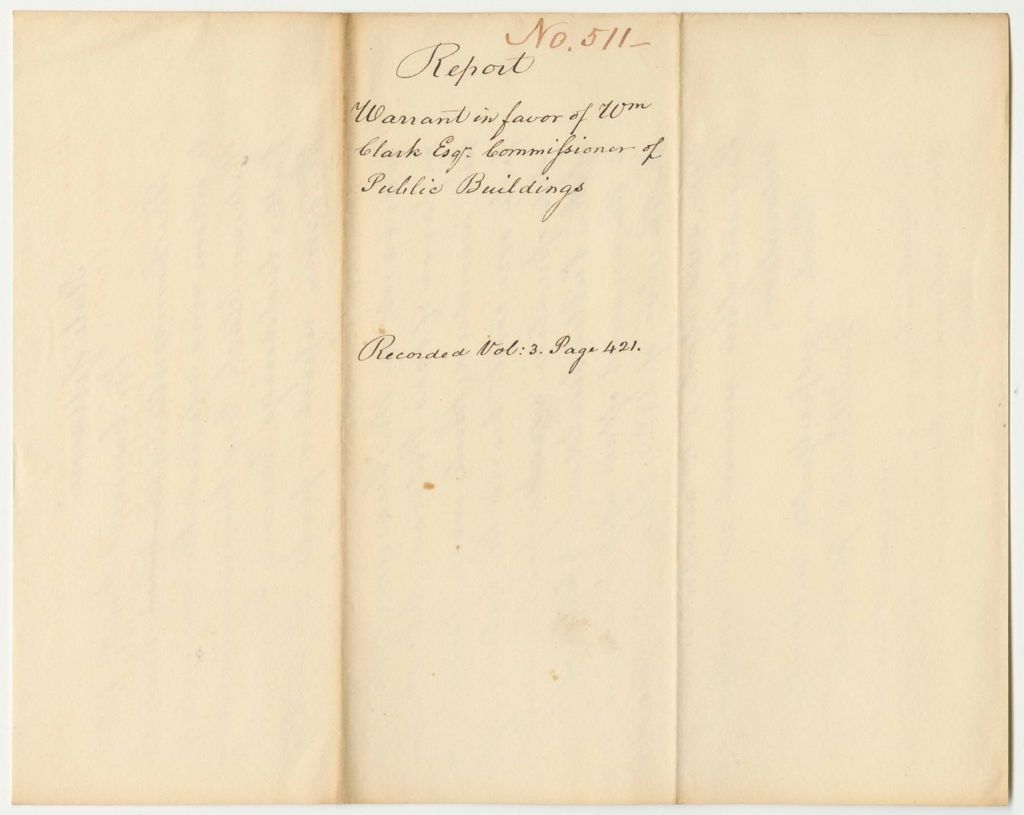 No. 511-
Report
Warrant in favor of Wm
Clark Esqr. Commissioner of
Public Buildings
Recorded Vol: 3. Page 421.